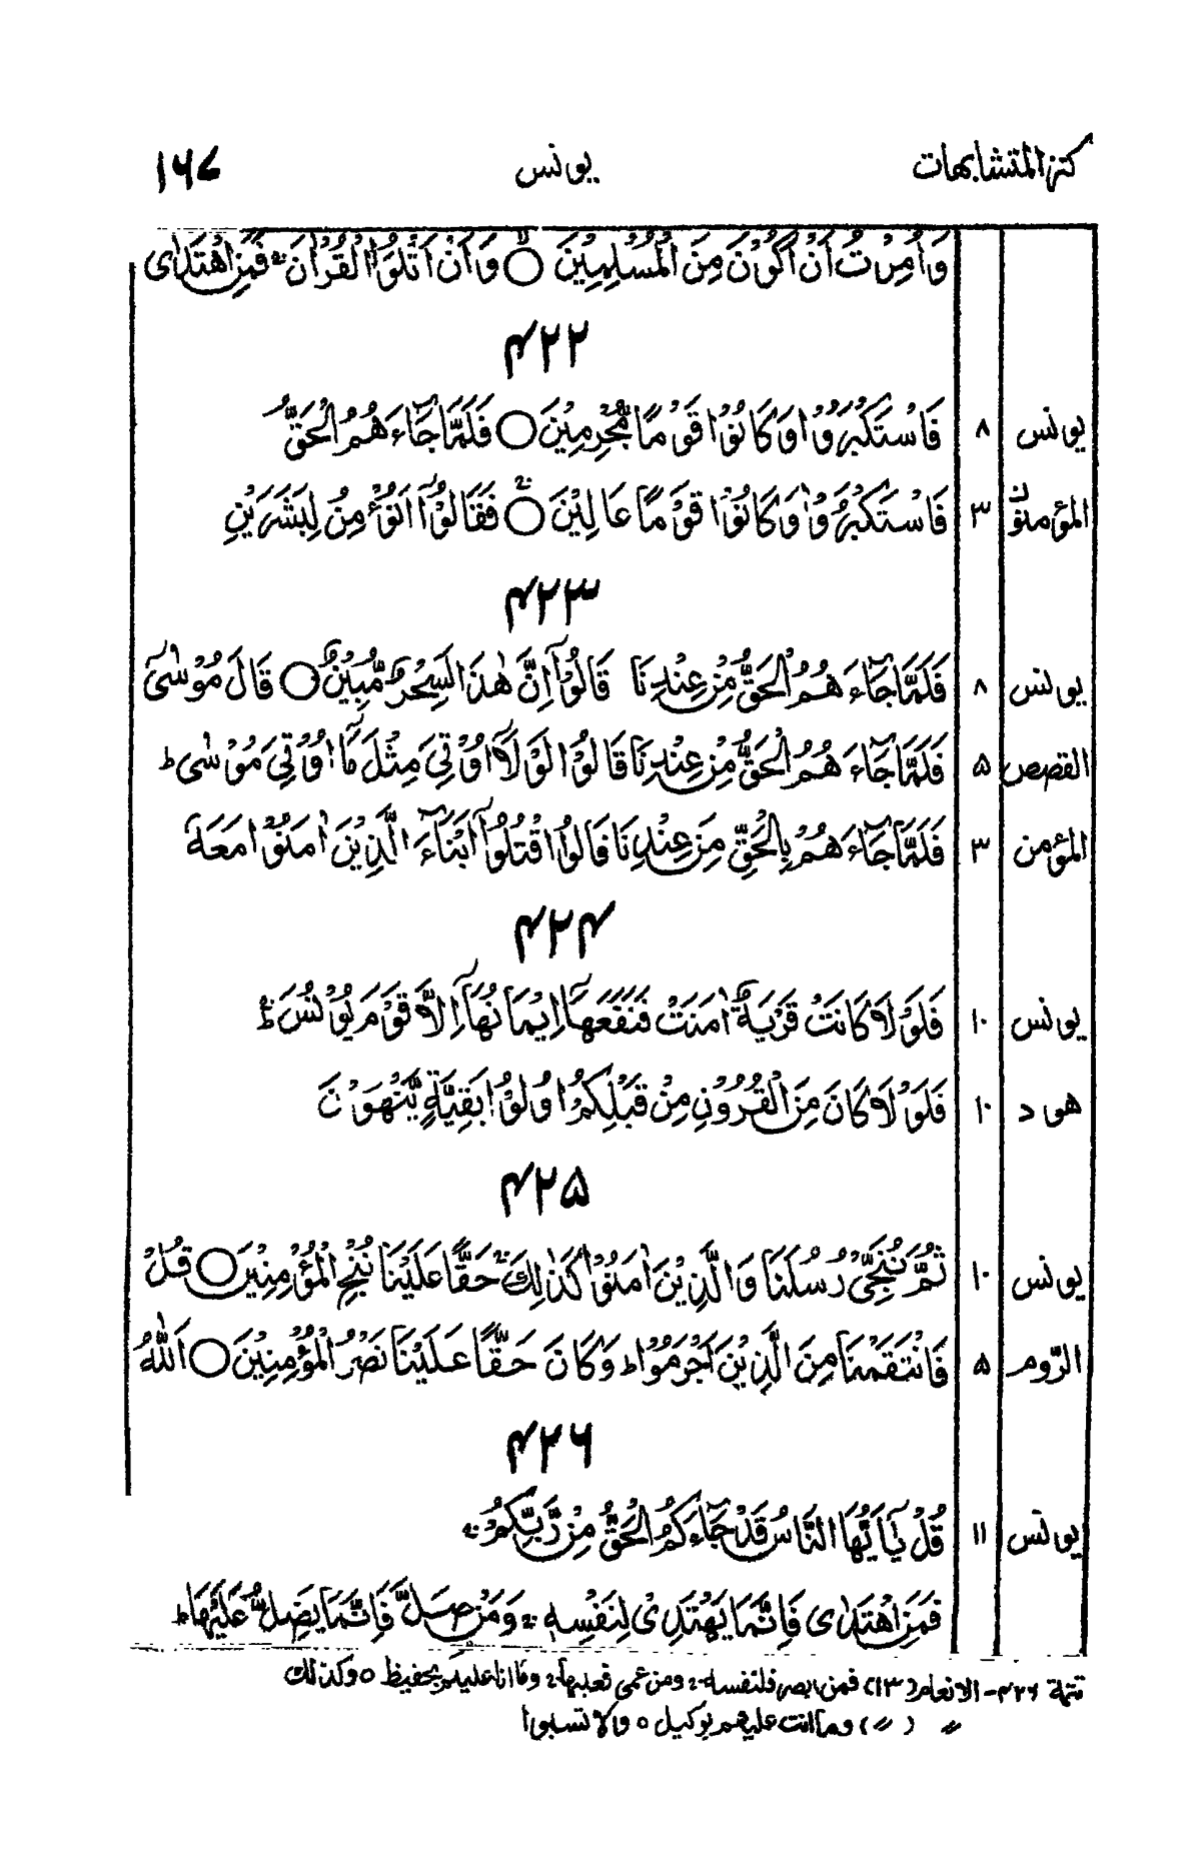 كنز المتشابهات يونس ۱۶۷
وَأُمِرْتُ أَنْ أَكُوْنَ مِنَ الْمُسْلِمِيْنَ ○ وَأَنْ أَتْلُوَا الْقُرْاٰنَ ۚ فَمَنِ اهْتَدٰى
۴۲۲
يونس ۸ فَاسْتَكْبَرُوْا وَكَانُوْا قَوْمًا مُّجْرِمِيْنَ ○ فَلَمَّا جَآءَهُمُ الْحَقُّ
المؤمنون ۳ فَاسْتَكْبَرُوْا وَكَانُوْا قَوْمًا عَالِيْنَ ○ فَقَالُوْٓا اَنُؤْمِنُ لِبَشَرَيْنِ
۴۲۳
يونس ۸ فَلَمَّا جَآءَهُمُ الْحَقُّ مِنْ عِنْدِنَا قَالُوْٓا اِنَّ هٰذَا لَسِحْرٌ مُّبِيْنٌ ○ قَالَ مُوْسٰىٓ
القصص ۵ فَلَمَّا جَآءَهُمُ الْحَقُّ مِنْ عِنْدِنَا قَالُوْا لَوْلَآ اُوْتِيَ مِثْلَ مَآ اُوْتِيَ مُوْسٰى ط
المؤمن ۳ فَلَمَّا جَآءَهُمْ بِالْحَقِّ مِنْ عِنْدِنَا قَالُوا اقْتُلُوْٓا اَبْنَآءَ الَّذِيْنَ اٰمَنُوْا مَعَهٗ
۴۲۴
يونس ۱۰ فَلَوْلَا كَانَتْ قَرْيَةٌ اٰمَنَتْ فَنَفَعَهَآ اِيْمَانُهَآ اِلَّا قَوْمَ يُوْنُسَ ط
هود ۱۰ فَلَوْلَا كَانَ مِنَ الْقُرُوْنِ مِنْ قَبْلِكُمْ اُولُوْا بَقِيَّةٍ يَّنْهَوْنَ
۴۲۵
يونس ۱۰ ثُمَّ نُنَجِّيْ رُسُلَنَا وَالَّذِيْنَ اٰمَنُوْا كَذٰلِكَ ۚ حَقًّا عَلَيْنَا نُنْجِ الْمُؤْمِنِيْنَ ○ قُلْ
الرّوم ۵ فَانْتَقَمْنَا مِنَ الَّذِيْنَ اَجْرَمُوْا ط وَكَانَ حَقًّا عَلَيْنَا نَصْرُ الْمُؤْمِنِيْنَ ○ اَللّٰهُ
۴۲۶
يونس ۱۱ قُلْ يٰٓاَيُّهَا النَّاسُ قَدْ جَآءَكُمُ الْحَقُّ مِنْ رَّبِّكُمْ ۚ
فَمَنِ اهْتَدٰى فَاِنَّمَا يَهْتَدِيْ لِنَفْسِهٖ ۚ وَمَنْ ضَلَّ فَاِنَّمَا يَضِلُّ عَلَيْهَا ط
تتمة ۴۲۶- الانعام (۱۳) فمن ابصر فلنفسه ۚ ومن عمي فعليها ۚ وما انا عليكم بحفيظ ○ وكذلك
〃 (〃) وما انت عليهم بوكيل ○ ولا تسبوا